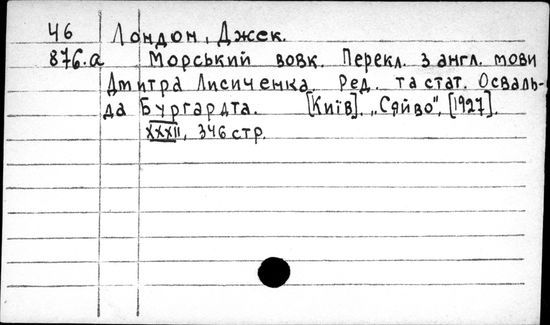 46 Лондон, Джек.
876.а Морський вовк. Перекл. з англ. мови
Дмитра Лисиченка. Ред. та стат. Осваль-
да Бургардта. [Київ], „Сяйво", [1927].
XXXII, 346 стр.